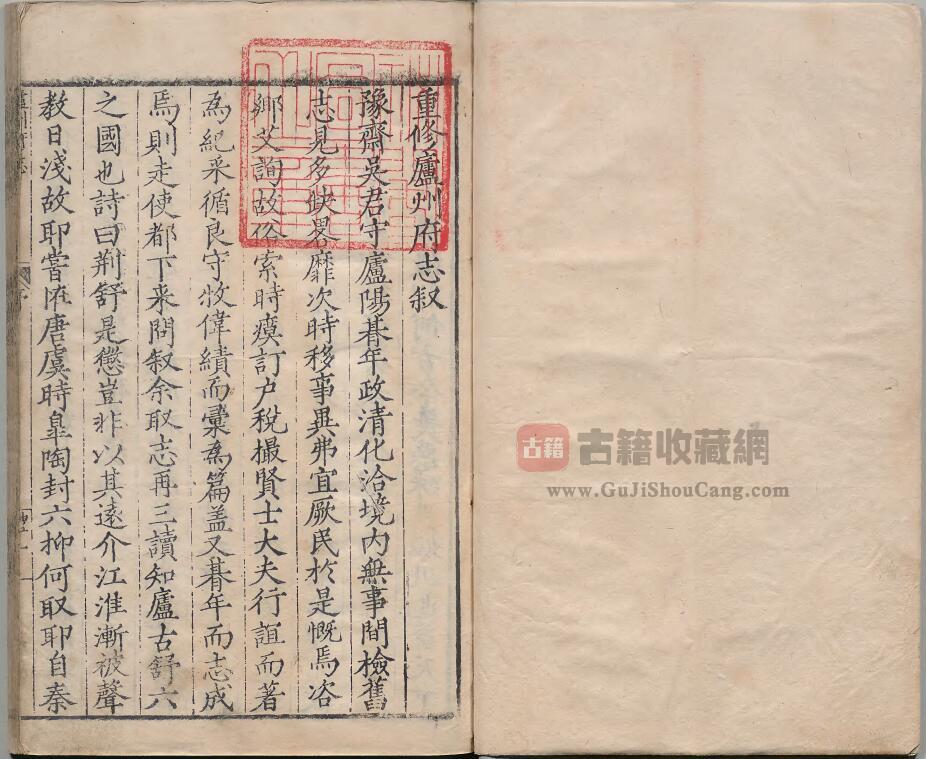 重修廬州府志叙
豫齋吳君守廬陽朞年政清化洽境内無事間檢舊
志見多缺畧靡次時移事異弗宜厥民於是慨焉咨
鄉艾詢故俗索時瘼訂户稅撮賢士大夫行誼而著
為紀采循良守牧偉績而彙為篇盖又朞年而志成
焉則走使都下来問叙余取志再三讀知廬古舒六
之國也詩曰荆舒是懲豈非以其遠介江淮漸被聲
教日淺故耶嘗恠唐虞時臯陶封六抑何取耶自秦
古籍
古籍收藏網
www.GuJiShouCang.com